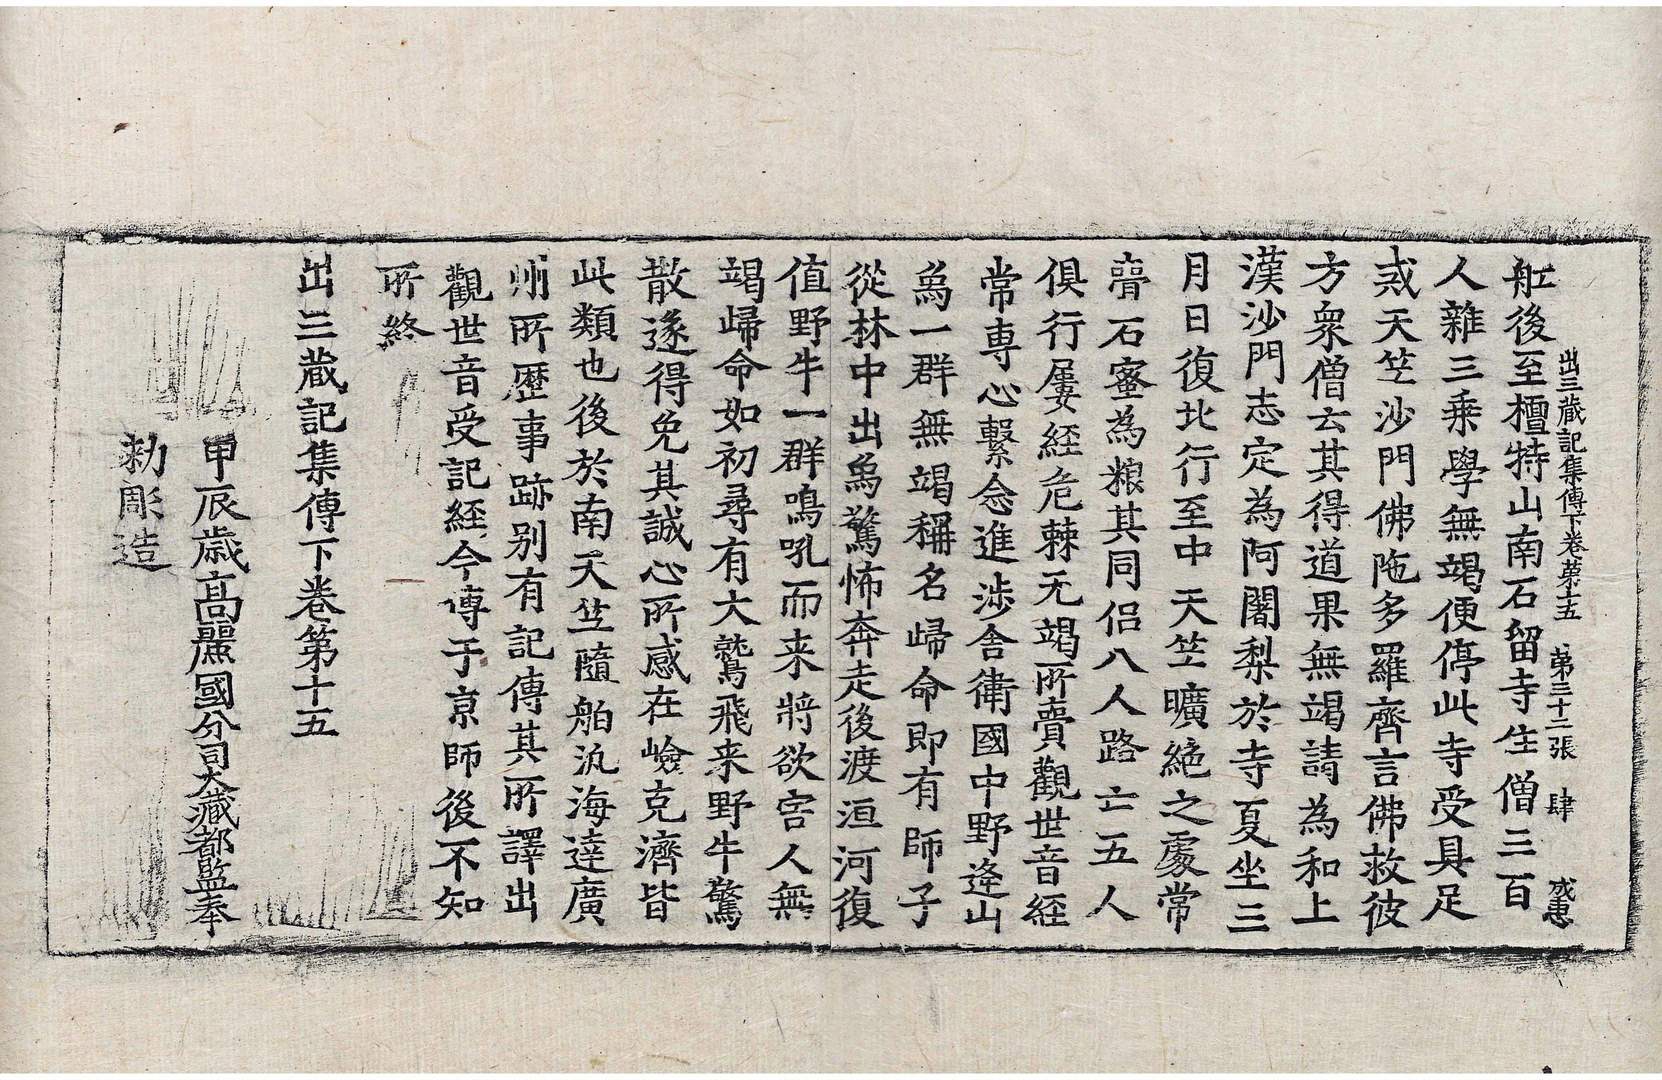 出三蔵記集傳下卷苐十五　苐三十二張　肆
舡後至檀特山南石留寺住僧三百
人雜三乘學無竭便停此寺受具足
戒天竺沙門佛陁多羅齊言佛救彼
方衆僧云其得道果無竭請為和上
漢沙門志定為阿闍梨於寺夏坐三
月日復北行至中天竺曠絶之處常
賷石蜜為粮其同侣八人路亡五人
俱行屢経危棘无竭所賷觀世音経
常専心繫念進涉舎衛國中野逢山
爲一群無竭稱名歸命即有師子
從林中出爲驚怖奔走後渡洹河復
值野牛一群鳴吼而来將欲害人無
竭歸命如初尋有大鷲飛来野牛驚
散遂得免其誠心所感在嶮克濟皆
此類也後於南天竺隨舶汎海達廣
州所歷事跡別有記傳其所譯出
觀世音受記経今傳于亰師後不知
所終
出三蔵記集傳下卷第十五
甲辰歲高麗國分司大藏都監奉
勑彫造